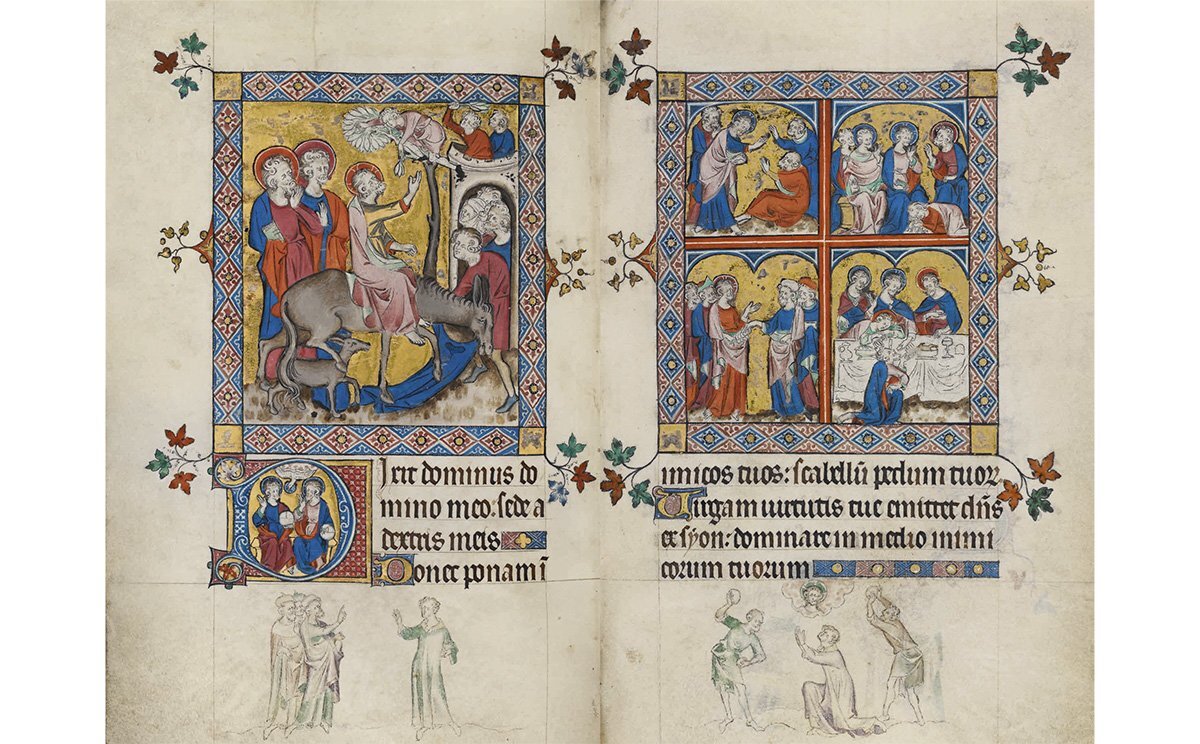 Dixit dominus do
mino meo: sede a
dextris meis
Donec ponam ī
imicos tuos: scabellū pedum tuor
Virgam uirtutis tue emittet dn̄s
ex syon: dominare in medio inimi
corum tuorum